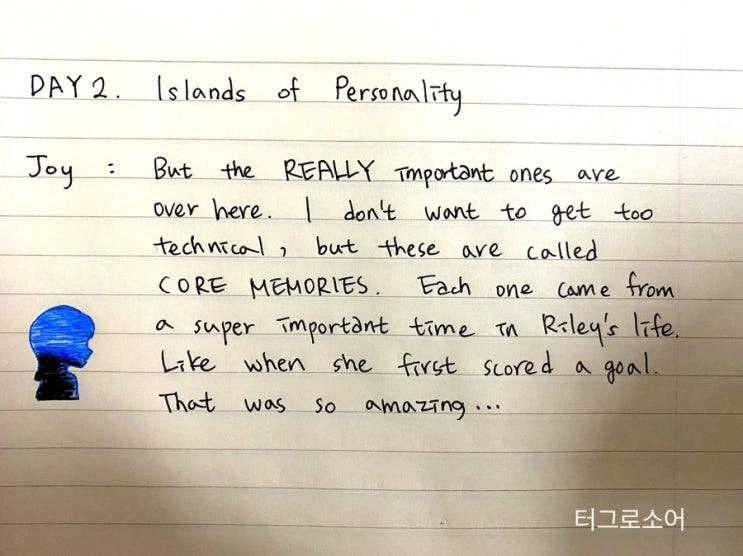 DAY 2. Islands of Personality
Joy : But the REALLY important ones are
over here. I don't want to get too
technical, but these are called
CORE MEMORIES. Each one came from
a super important time in Riley's life.
Like when she first scored a goal.
That was so amazing...
터그로소어